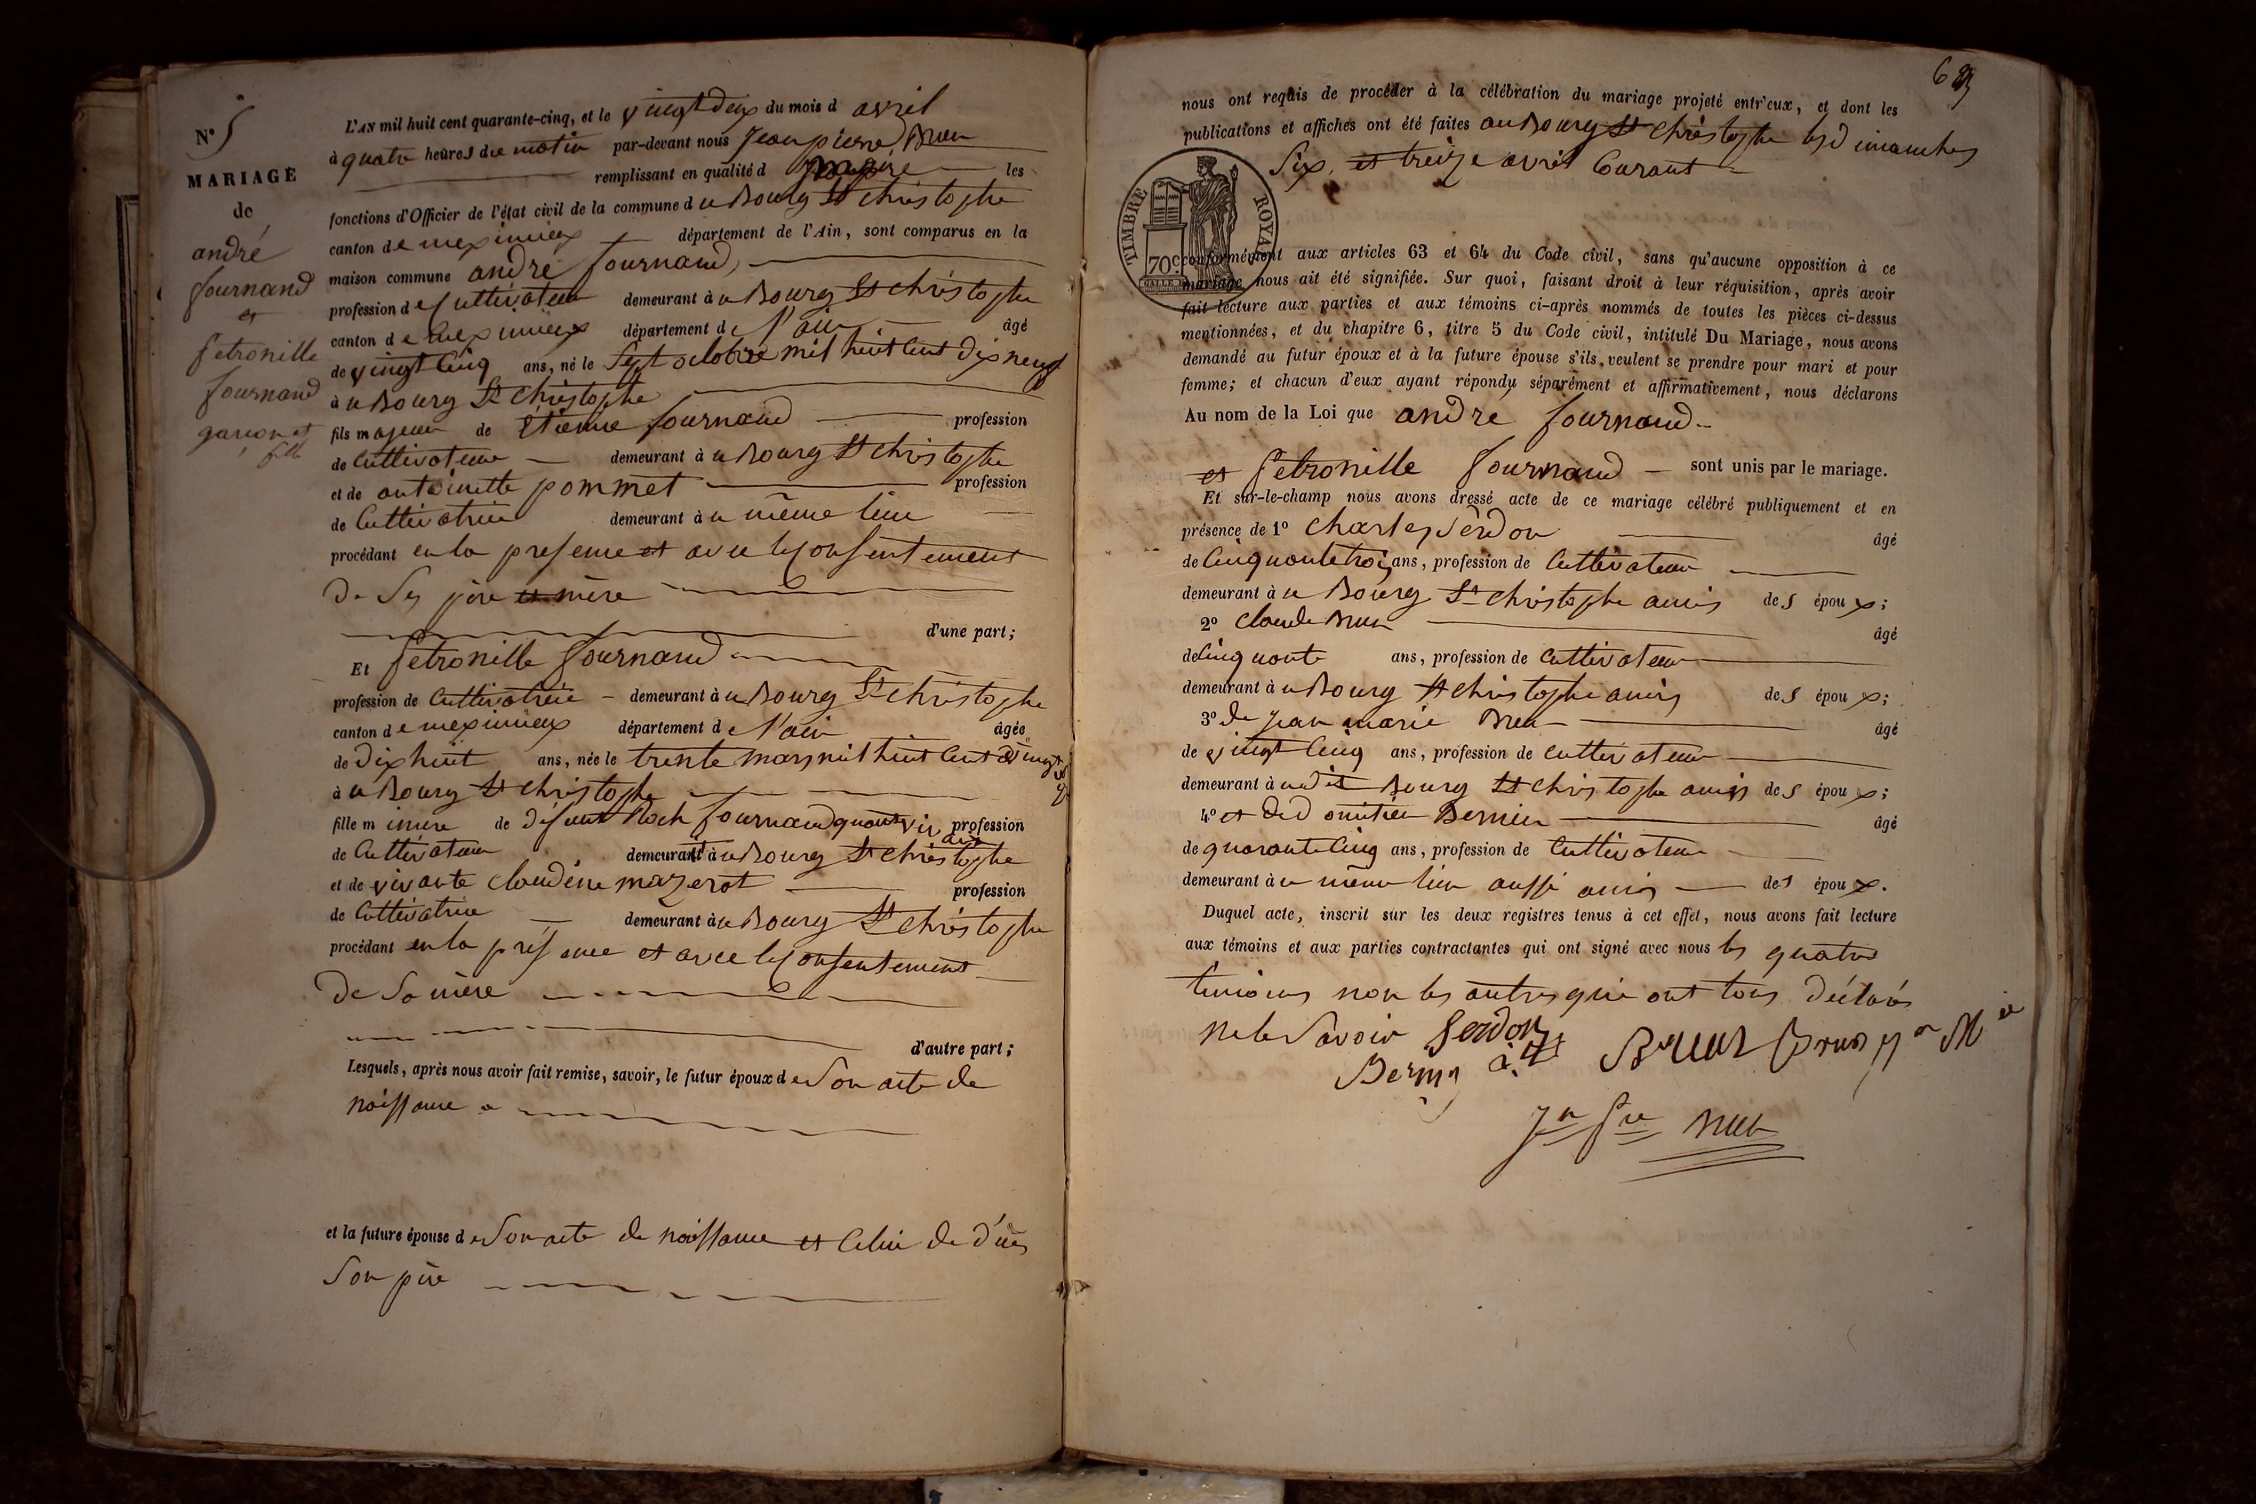 N° 5
MARIAGE
de
andré
fournand
et
petronille
fournand
garçon et
fille
L'AN mil huit cent quarante-cinq, et le vingt deux du mois d avril
à quatre heures du matin par-devant nous Jean pierre Brun
remplissant en qualité d maire les
fonctions d'Officier de l'état civil de la commune d u Bourg St christophe
canton d e meximieux département de l'Ain, sont comparus en la
maison commune andré fournand,
profession de Cultivateur demeurant à u Bourg St christophe
canton d e meximieux département d e l'ain âgé
de vingt cinq ans, né le sept octobre mil huit cent dix neuf
à u Bourg St christophe
fils majeur de étienne fournand profession
de Cultivateur demeurant à u Bourg St christophe
et de antoinette pommet profession
de Cultivatrice demeurant à u même lieu
procédant en la presence et avec le consentement
de ses père et mère
d'une part;
Et petronille fournand
profession de cultivatrice demeurant à u Bourg St christophe
canton d e meximieux département d e l'ain âgée
de dix huit ans, née le trente mars mil huit cent vingt
à u Bourg St christophe
fille mineure de défunt Roch fournand quant vivait profession
de Cultivateur demeurant à u Bourg St christophe
et de vivante claudine mazerot profession
de Cultivatrice demeurant à u Bourg St christophe
procédant en la présence et avec le consentement
de sa mère
d'autre part;
Lesquels, après nous avoir fait remise, savoir, le futur époux d e son acte de
naissance
et la future épouse d e son acte de naissance et celui de décès
son père
nous ont requis de procéder à la célébration du mariage projeté entr'eux, et dont les
publications et affiches ont été faites au Bourg St christophe les dimanches
six et treize avril Courant
TIMBRE ROYAL
70 c
conformément aux articles 63 et 64 du Code civil, sans qu'aucune opposition à ce
mariage nous ait été signifiée. Sur quoi, faisant droit à leur réquisition, après avoir
fait lecture aux parties et aux témoins ci-après nommés de toutes les pièces ci-dessus
mentionnées, et du chapitre 6, titre 5 du Code civil, intitulé Du Mariage, nous avons
demandé au futur époux et à la future épouse s'ils veulent se prendre pour mari et pour
femme; et chacun d'eux ayant répondu séparément et affirmativement, nous déclarons
Au nom de la Loi que andré fournand
et petronille fournand sont unis par le mariage.
Et sur-le-champ nous avons dressé acte de ce mariage célébré publiquement et en
présence de 1° Charles Serdon âgé
de Cinquante trois ans, profession de Cultivateur
demeurant à u Bourg St christophe amis des époux;
2° Claude Brun âgé
de Cinquante ans, profession de Cultivateur
demeurant à u Bourg St christophe amis des époux;
3° de jean marie Brun âgé
de vingt cinq ans, profession de cultivateur
demeurant à u dit Bourg St christophe amis des époux;
4° et de Bernin âgé
de quarante cinq ans, profession de Cultivateur
demeurant à u même lieu aussi amis des époux.
Duquel acte, inscrit sur les deux registres tenus à cet effet, nous avons fait lecture
aux témoins et aux parties contractantes qui ont signé avec nous les quatre
temoins non les autres qui ont tous déclarés
ne le savoir Serdon Brun Brun jn Mie
Jn Pre Brun